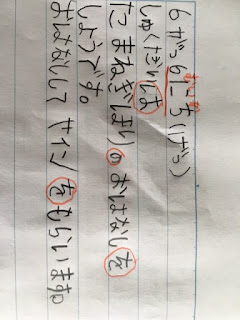 6がつ6にち(げつ)
しゅくだいは
たまねぎほりのおはなしを
しようです。
おはなして サインをもらいます。